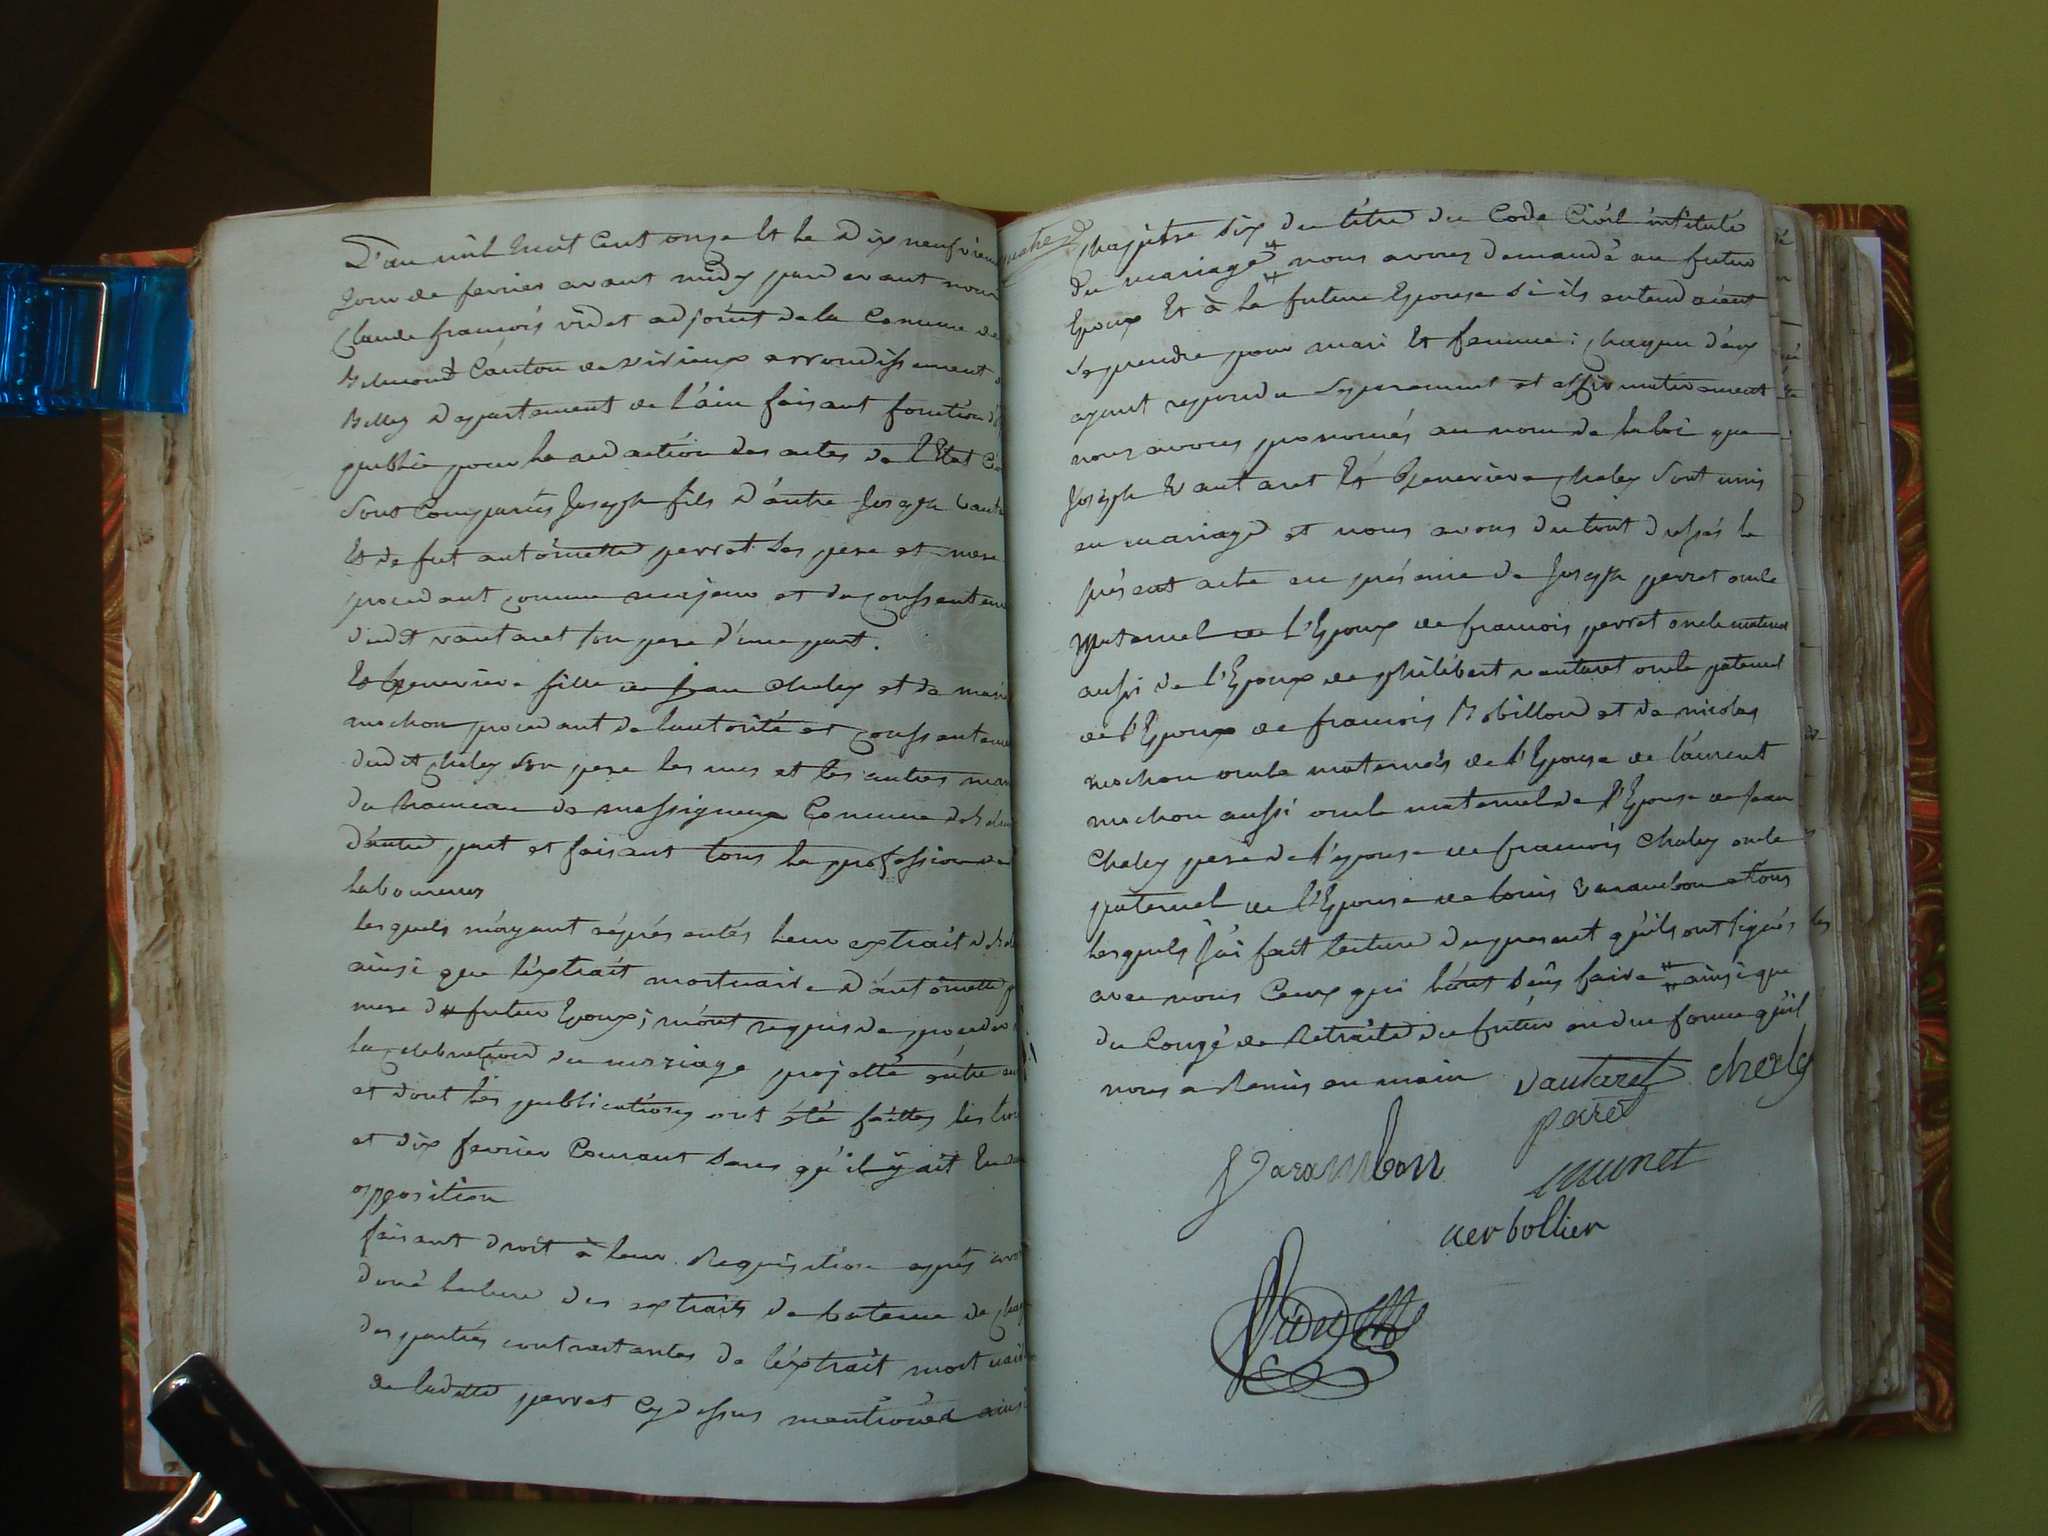 L'an mil huit cent onze et le dix neufvieme
jour de fevrier avant midy pardevant nous
Claude francois videt adjoint de la Comune de
Belmond Canton de virieux arrondissement de
Belley departement de l'ain faisant fonction
public pour la redaction des actes de l'Etat
sont comparus Joseph fils d'autre Joseph
Et de fut antoinette perret ses pere et mere
procedant comme majeur et du conssentem
dudit vautaret son pere d'une part.
Et Genevieve fille de jean chaley et de marie
mochon procedant de l'autorité et conssenteme
dudit chaley son pere les uns et les autres
du hameau de massigneux Comune
d'autre part et faisant tous la profession de
laboureurs
lesquels m'ayant réprésentés leur extrait
ainsi que l'extrait mortuaire d'antoinette
mere du futur Epoux; m'ont requis de proceder
la celebration du marriage projetté entre
et dont les publications ont été faittes les
et dix fevrier Courant sans qu'il y ait
opposition
faisant droit à leur Requisition après
doné lecture des extraits de bateme de
des parties contractantes de l'extrait mortuaire
de ladite perret cy dessus mentioné ainsi
chapitre six du titre du Code Civil intitulé
du mariage nous avons demandé au futur
Epoux Et à la future Epouse si ils entendoient
se prendre pour mari Et femme: chaqun d'eux
ayant repondu separement et affirmativement
nous avons prononcés au nom de la loi que
Joseph Vautaret Et Genevieve chaley sont unis
en mariage et nous avons du tout dressés le
présent acte en présence de Joseph perret oncle
maternel de l'Epoux de francois perret oncle maternel
aussi de l'Epoux de philibert vautaret oncle paternel
de l'Epoux de francois Robillond et de nicolas
mochon oncle maternels de l'Epouse de laurent
mochon aussi oncle maternel de l'Epouse de jean
Chaley pere de l'epouse de francois Chaley oncle
paternel de l'Epouse de louis Varambon a tous
lesquels j'ai fait lecture du present qu'ils ont signés
avec nous Ceux qui l'ont sçu faire ainsi que
du Congé de Retraite du futur en due forme qu'il
nous a Remis en main vautaret chaley
peret
Varambon munet
verbollier
Videt